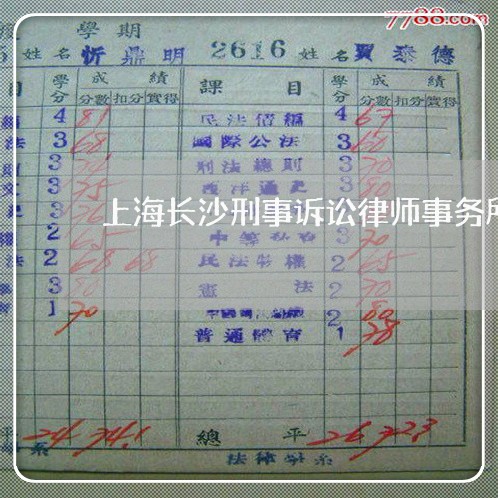 7788.com
學期
5 姓名 忻鼎明 2616 姓名 賈泰德
目 學分 成績 課目 學分 成績
分數 扣分 實得 分數 扣分 實得
4 81 民法債編 4 67
法 3 68 國際公法 3 60
3 刑法總則 3 70
文 3 75 西洋通史 3 80
上海长沙刑事诉讼律师事务所
權 2 65 3 70
法 2 68 68 民法物權 2 65
3 80 憲法 2 70
1 70 2 80
普通體育 1 78
平 24 74.1 總平 26 72.3
系 法律學系